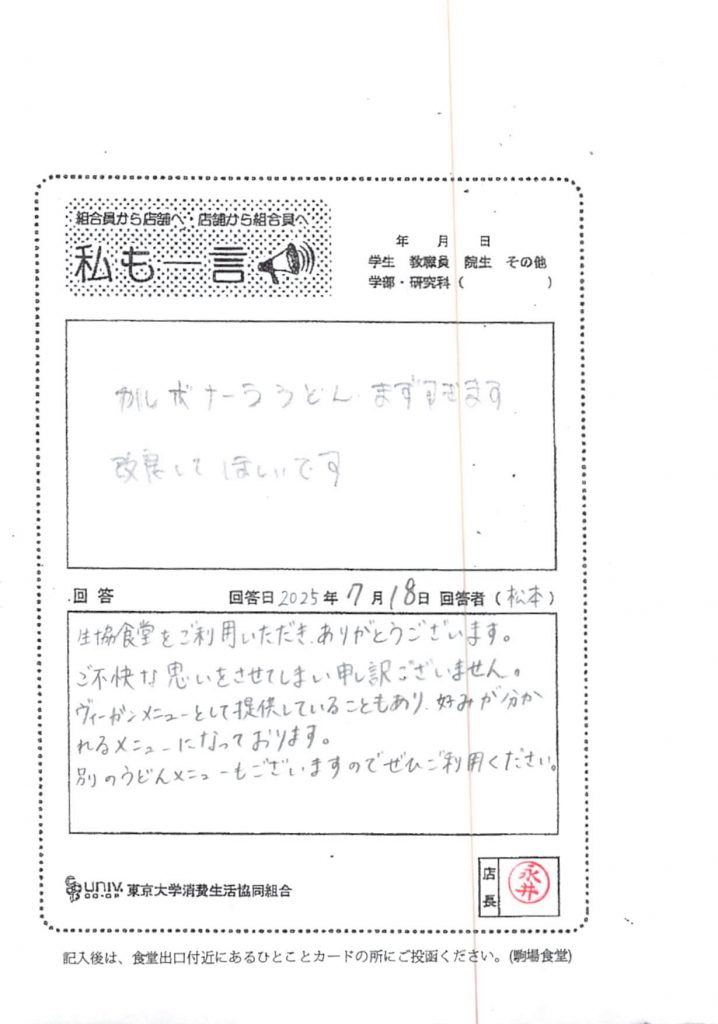 組合員から店舗へ・店舗から組合員へ
私も一言
年 月 日
学生 教職員 院生 その他
学部・研究科( )
カルボナーラうどん、まずすぎます
改善してほしいです
回答 回答日2025年7月18日 回答者(松本)
生協食堂をご利用いただき、ありがとうございます。
ご不快な思いをさせてしまい申し訳ございません。
ヴィーガンメニューとして提供していることもあり、好みが分か
れるメニューになっております。
別のうどんメニューもございますのでぜひご利用ください。
UNIV. CO-OP 東京大学消費生活協同組合
店長
永井
記入後は、食堂出口付近にあるひとことカードの所にご投函ください。(駒場食堂)